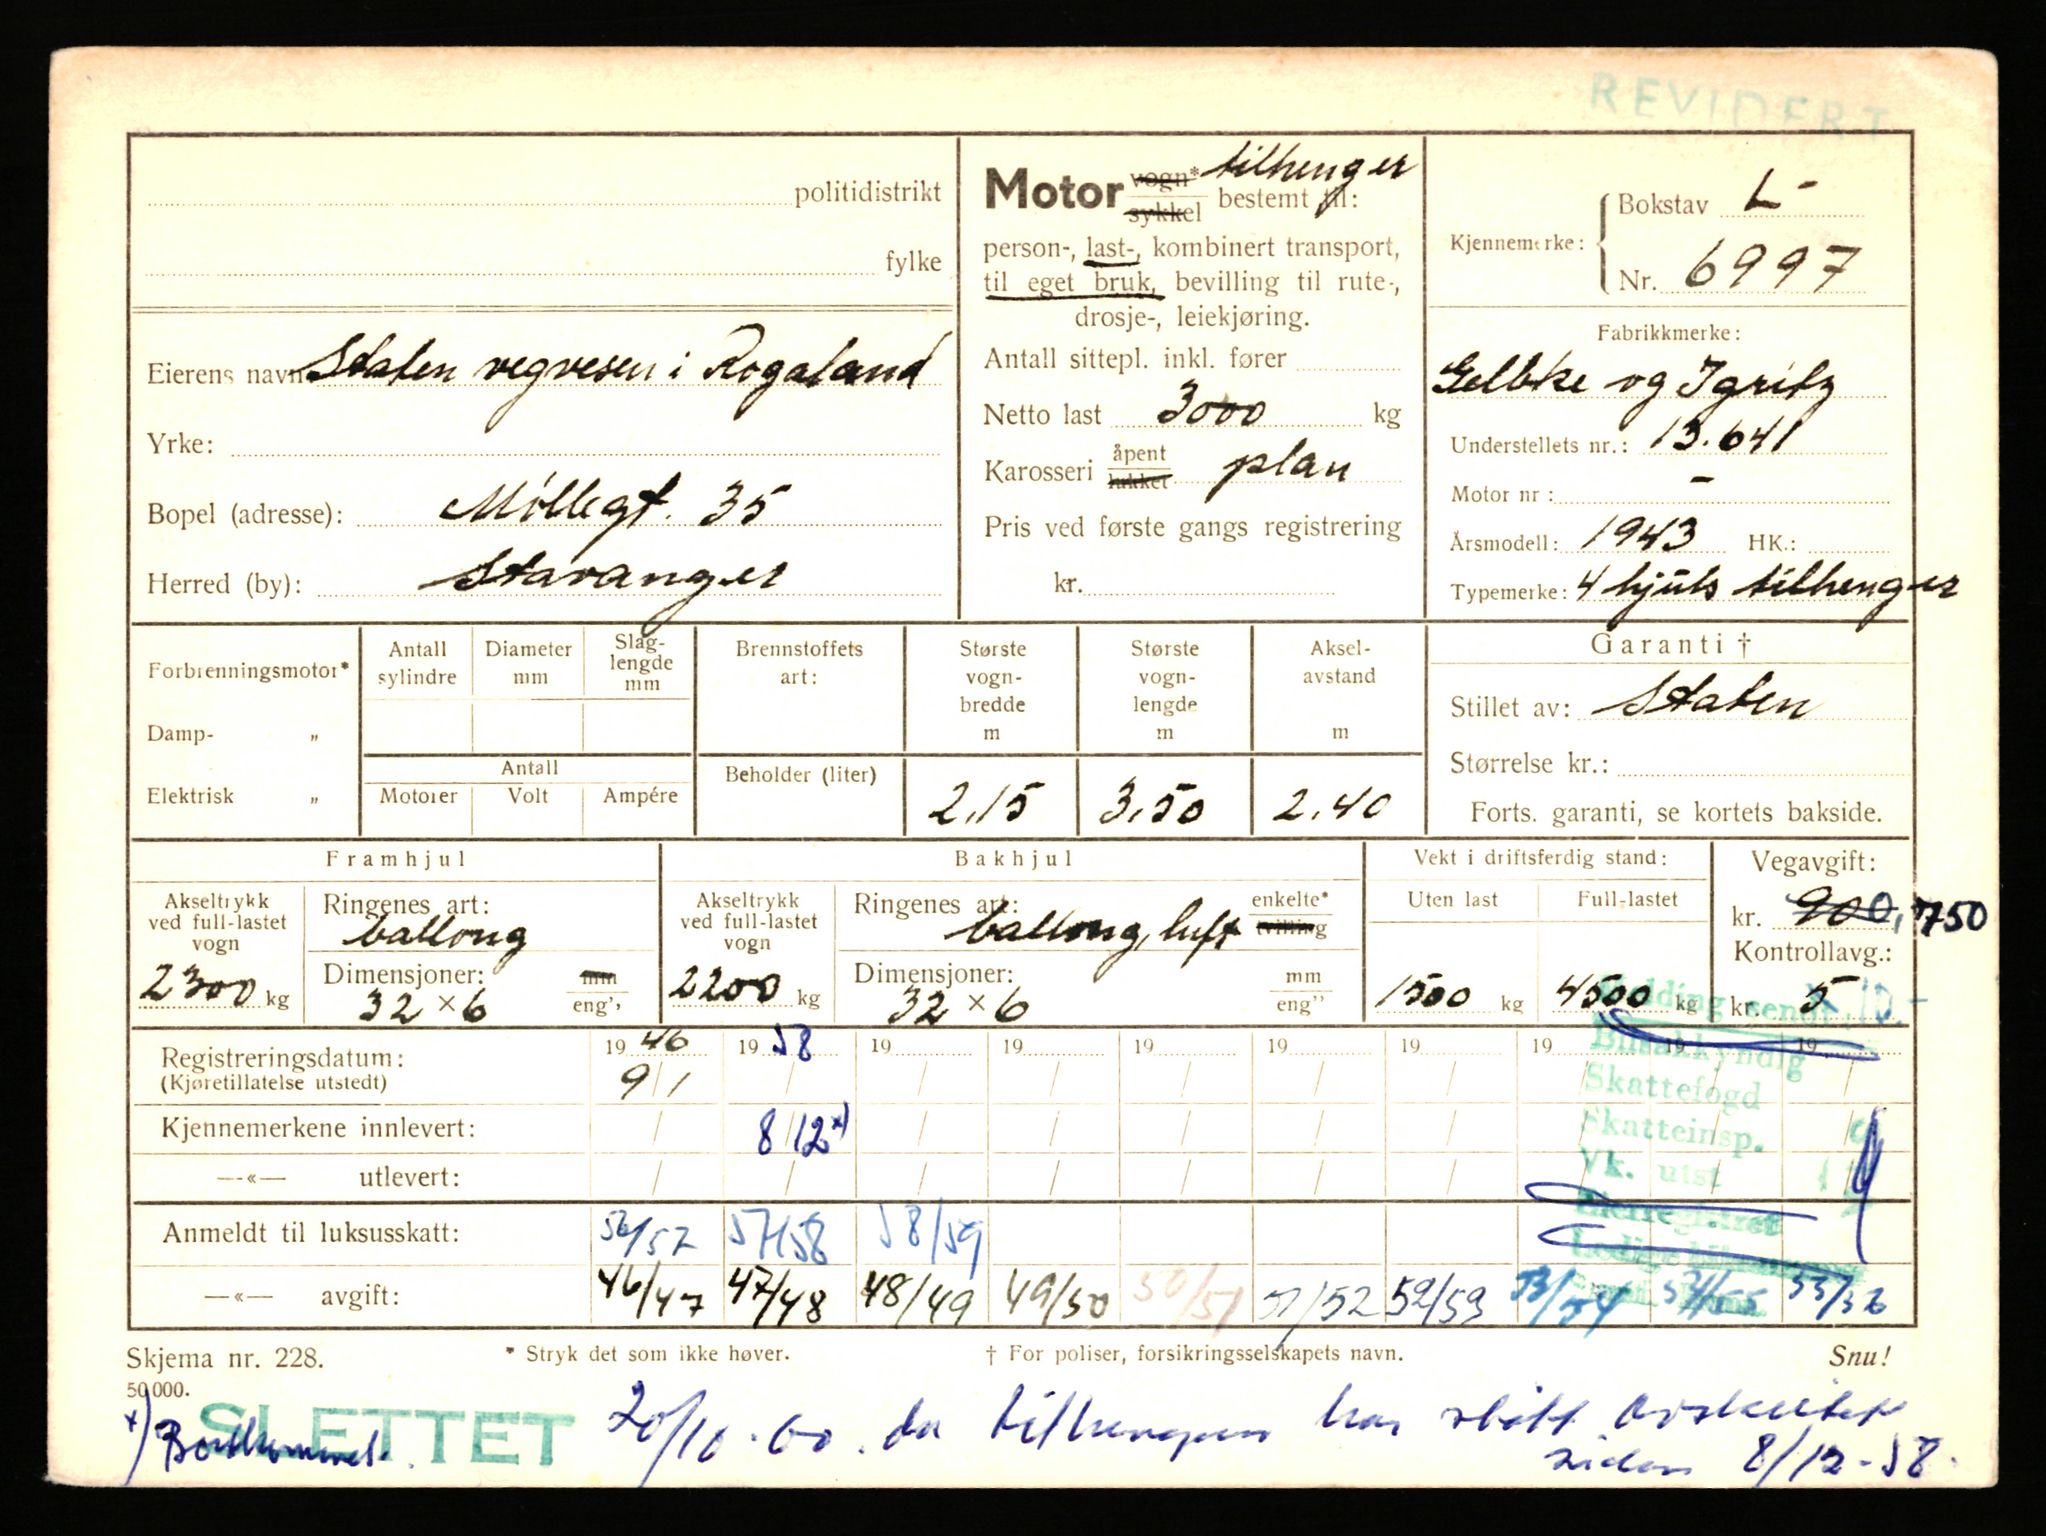 REVIDERT
politidistrikt
fylke
Eierens navn Staten vegvesen i Rogaland
Yrke:
Bopel (adresse): Møllegt. 35
Herred (by): Stavanger
Motor vogn* sykkel tilhenger bestemt til:
person-, last-, kombinert transport,
til eget bruk, bevilling til rute-,
drosje-, leiekjøring.
Antall sittepl. inkl. fører
Netto last 3000 kg
Karosseri åpent lukket plan
Pris ved første gangs registrering
kr.
Kjennemerke: Bokstav L-
Nr. 6997
Fabrikkmerke:
Gelbke og Igritz
Understellets nr.: 13.641
Motor nr: -
Årsmodell: 1943 HK.:
Typemerke: 4 hjuls tilhenger
Forbrenningsmotor*
Damp- „
Elektrisk „
Antall sylindre
Diameter mm
Slag-lengde mm
Antall
Motorer Volt Ampére
Brennstoffets art:
Beholder (liter)
Største vogn-bredde m
2,15
Største vogn-lengde m
3,50
Aksel-avstand m
2.40
Garanti †
Stillet av: Staten
Størrelse kr.:
Forts. garanti, se kortets bakside.
Framhjul
Akseltrykk ved full-lastet vogn
2300 kg
Ringenes art:
ballong
Dimensjoner: mm
32 × 6 eng",
Bakhjul
Akseltrykk ved full-lastet vogn
2200 kg
Ringenes art: enkelte*
ballong, luft tvilling
Dimensjoner: mm
32 × 6 eng"
Vekt i driftsferdig stand:
Uten last Full-lastet
1500 kg 4500 kg
Vegavgift:
kr. 900, 750
Kontrollavg.:
kr. 5 10.-
Registreringsdatum: 19 46 19 58 19 19 19 19 19 19 19 19
(Kjøretillatelse utstedt) 9/1
Kjennemerkene innlevert: 8/12 x)
—«— utlevert:
Anmeldt til luksusskatt: 56/57 57/58 58/59
—«— avgift: 46/47 47/48 48/49 49/50 50/51 51/52 52/53 53/54 54/55 55/56
Melding sendt
Bilsakkyndig
Skattefogd
Skatteinsp.
Vk. utst
Eierregistret
Skjema nr. 228.
* Stryk det som ikke høver.
† For poliser, forsikringsselskapets navn.
Snu!
50 000.
SLETTET 20/10-60. da tilhengeren har stått avskiltet
siden 8/12-58.
x) Bortkommet.